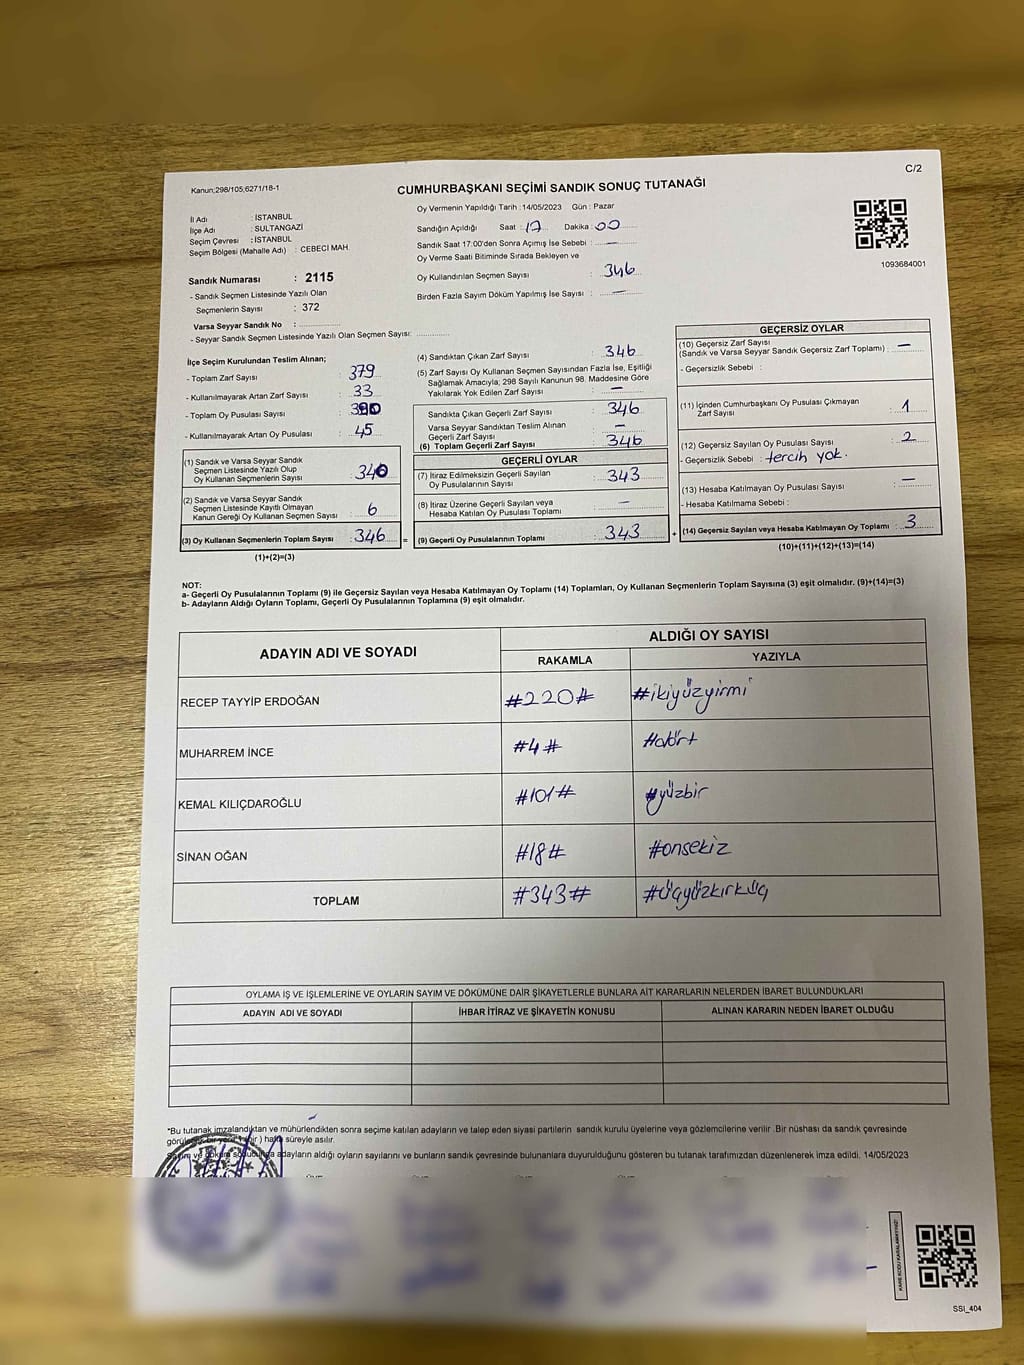 C/2
Kanun;298/105,6271/18-1
CUMHURBAŞKANI SEÇİMİ SANDIK SONUÇ TUTANAĞI
İl Adı : İSTANBUL
İlçe Adı : SULTANGAZİ
Seçim Çevresi : İSTANBUL
Seçim Bölgesi (Mahalle Adı) : CEBECİ MAH.
Sandık Numarası : 2115
- Sandık Seçmen Listesinde Yazılı Olan
Seçmenlerin Sayısı : 372
Varsa Seyyar Sandık No :
- Seyyar Sandık Seçmen Listesinde Yazılı Olan Seçmen Sayısı:
Oy Vermenin Yapıldığı Tarih : 14/05/2023 Gün : Pazar
Sandığın Açıldığı Saat : 17 Dakika : 00
Sandık Saat 17:00'den Sonra Açımış İse Sebebi : —
Oy Verme Saati Bitiminde Sırada Bekleyen ve
Oy Kullandırılan Seçmen Sayısı : 346
Birden Fazla Sayım Döküm Yapılmış İse Sayısı : —
1093684001
İlçe Seçim Kurulundan Teslim Alınan;
- Toplam Zarf Sayısı : 379
- Kullanılmayarak Artan Zarf Sayısı : 33
- Toplam Oy Pusulası Sayısı :
- Kullanılmayarak Artan Oy Pusulası : 45
(1) Sandık ve Varsa Seyyar Sandık
Seçmen Listesinde Yazılı Olup
Oy Kullanan Seçmenlerin Sayısı : 340
(2) Sandık ve Varsa Seyyar Sandık
Seçmen Listesinde Kayıtlı Olmayan
Kanun Gereği Oy Kullanan Seçmen Sayısı : 6
(3) Oy Kullanan Seçmenlerin Toplam Sayısı : 346
(1)+(2)=(3)
(4) Sandıktan Çıkan Zarf Sayısı : 346
(5) Zarf Sayısı Oy Kullanan Seçmen Sayısından Fazla İse, Eşitliği
Sağlamak Amacıyla; 298 Sayılı Kanunun 98. Maddesine Göre
Yakılarak Yok Edilen Zarf Sayısı : —
Sandıkta Çıkan Geçerli Zarf Sayısı : 346
Varsa Seyyar Sandıktan Teslim Alınan
Geçerli Zarf Sayısı : —
(6) Toplam Geçerli Zarf Sayısı : 346
=
GEÇERLİ OYLAR
(7) İtiraz Edilmeksizin Geçerli Sayılan
Oy Pusulalarının Sayısı : 343
(8) İtiraz Üzerine Geçerli Sayılan veya
Hesaba Katılan Oy Pusulası Toplamı : —
(9) Geçerli Oy Pusulalarının Toplamı : 343
+
GEÇERSİZ OYLAR
(10) Geçersiz Zarf Sayısı
(Sandık ve Varsa Seyyar Sandık Geçersiz Zarf Toplamı) : —
- Geçersizlik Sebebi :
(11) İçinden Cumhurbaşkanı Oy Pusulası Çıkmayan
Zarf Sayısı : 1
(12) Geçersiz Sayılan Oy Pusulası Sayısı : 2
- Geçersizlik Sebebi : tercih yok.
(13) Hesaba Katılmayan Oy Pusulası Sayısı : —
- Hesaba Katılmama Sebebi :
(14) Geçersiz Sayılan veya Hesaba Katılmayan Oy Toplamı : 3
(10)+(11)+(12)+(13)=(14)
NOT:
a- Geçerli Oy Pusulalarının Toplamı (9) ile Geçersiz Sayılan veya Hesaba Katılmayan Oy Toplamı (14) Toplamları, Oy Kullanan Seçmenlerin Toplam Sayısına (3) eşit olmalıdır. (9)+(14)=(3)
b- Adayların Aldığı Oyların Toplamı, Geçerli Oy Pusulalarının Toplamına (9) eşit olmalıdır.
ADAYIN ADI VE SOYADI
ALDIĞI OY SAYISI
RAKAMLA YAZIYLA
RECEP TAYYİP ERDOĞAN #220# #ikiyüzyirmi
MUHARREM İNCE #4# #dört
KEMAL KILIÇDAROĞLU #101# #yüzbir
SİNAN OĞAN #18# #onsekiz
TOPLAM #343# #üçyüzkırküç
OYLAMA İŞ VE İŞLEMLERİNE VE OYLARIN SAYIM VE DÖKÜMÜNE DAİR ŞİKAYETLERLE BUNLARA AİT KARARLARIN NELERDEN İBARET BULUNDUKLARI
ADAYIN ADI VE SOYADI İHBAR İTİRAZ VE ŞİKAYETİN KONUSU ALINAN KARARIN NEDEN İBARET OLDUĞU
*Bu tutanak imzalandıktan ve mühürlendikten sonra seçime katılan adayların ve talep eden siyasi partilerin sandık kurulu üyelerine veya gözlemcilerine verilir .Bir nüshası da sandık çevresinde
) hafta süreyle asılır.
Sayım ve döküm sonucunda adayların aldığı oyların sayılarını ve bunların sandık çevresinde bulunanlara duyurulduğunu gösteren bu tutanak tarafımızdan düzenlenerek imza edildi. 14/05/2023
KARE KODU KARALAMAYINIZ!
SSI_404